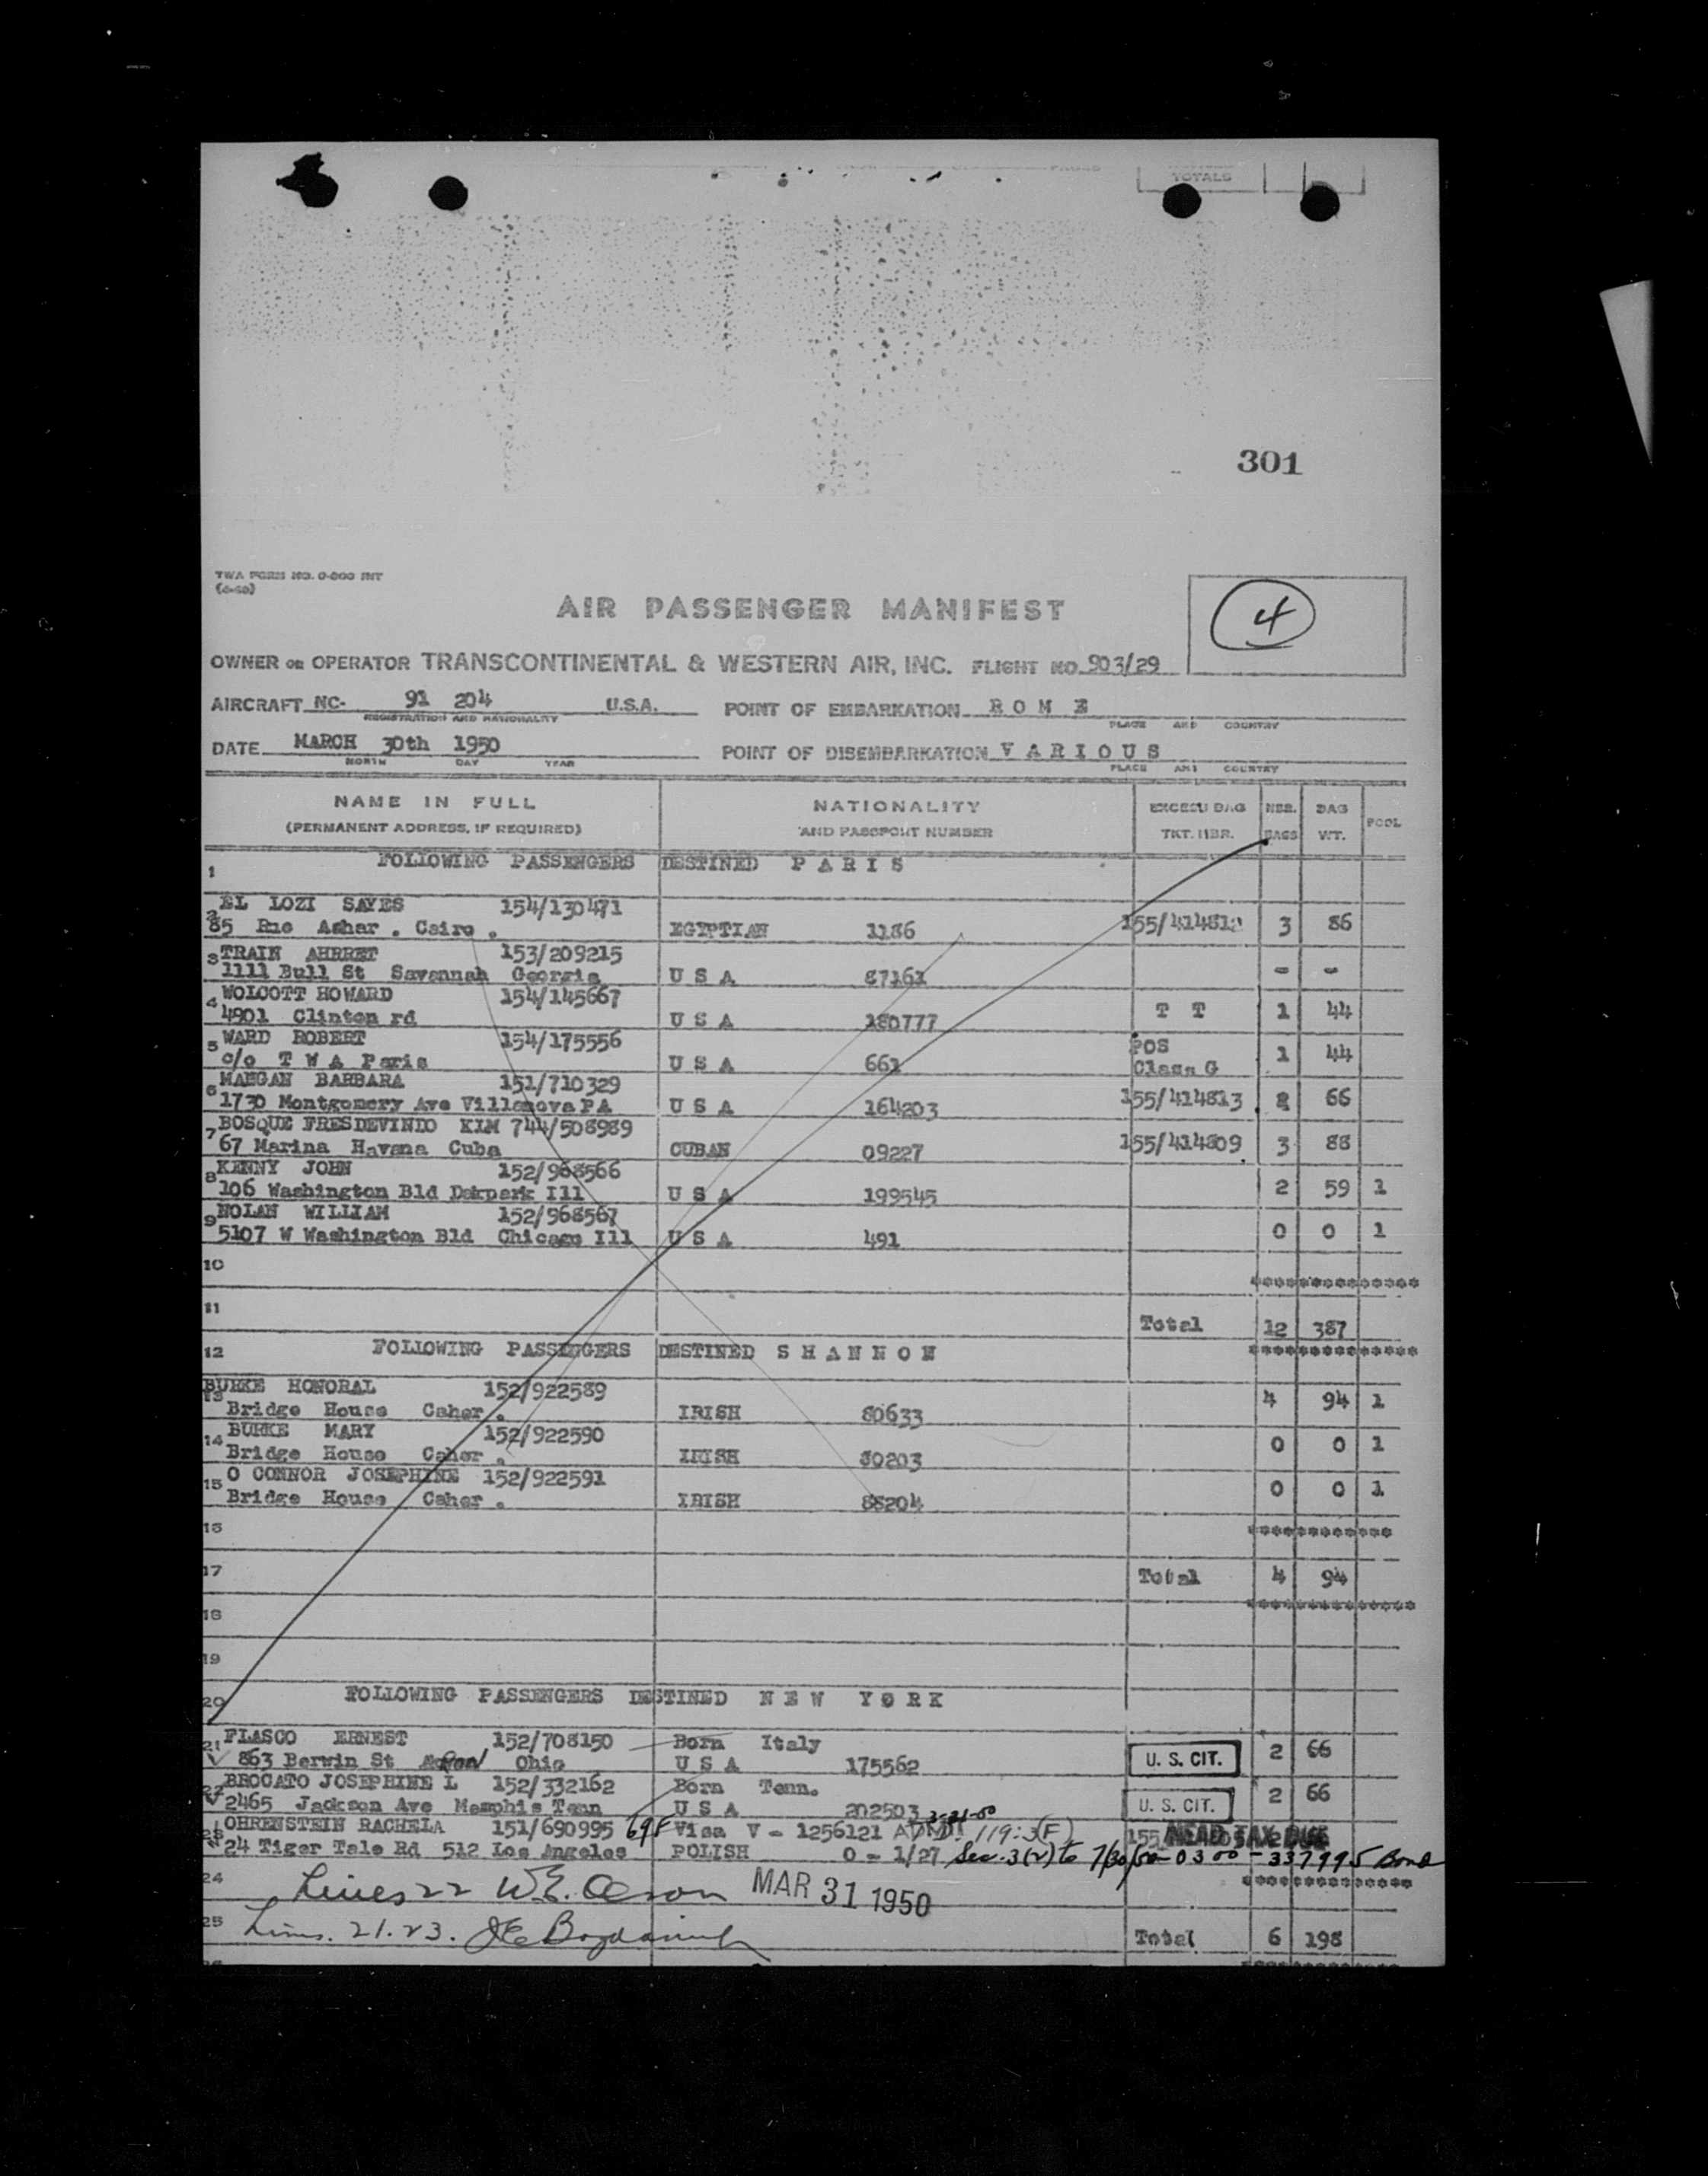 TOTALS
301
TWA FORM NO. 0-800 INT
AIR PASSENGER MANIFEST
4
OWNER OR OPERATOR TRANSCONTINENTAL & WESTERN AIR, INC. FLIGHT NO. 903/29
AIRCRAFT NC- 91 204 U.S.A. POINT OF EMBARKATION R O M E
REGISTRATION AND NATIONALITY PLACE AND COUNTRY
DATE MARCH 30th 1950 POINT OF DISEMBARKATION V A R I O U S
MONTH DAY YEAR PLACE AND COUNTRY
NAME IN FULL NATIONALITY EXCESS BAG NBR. BAG POOL
(PERMANENT ADDRESS, IF REQUIRED) AND PASSPORT NUMBER TKT. NBR. BAGS WT.
1 FOLLOWING PASSENGERS DESTINED P A R I S
2 EL LOZI SAYES 154/130471
85 Rue Azhar . Cairo . EGYPTIAN 1186 3 86
3 TRAIN AHBRET 153/209215
1111 Bull St Savannah Georgia U S A 87161 - -
4 WOLCOTT HOWARD 154/145667
4901 Clinton rd U S A 180777 T T 1 44
5 WARD ROBERT 154/175556 POS
c/o T W A Paris U S A 661 Class G 1 44
6 MANGAN BARBARA 151/710329
1730 Montgomery Ave Villanova PA U S A 164203 155/414813 2 66
7 BOSQUE FRESDEVINDO KIM 744/508989
67 Marina Havana Cuba CUBAN 09227 155/414809 3 88
8 KENNY JOHN 152/968566
106 Washington Bld Oakpark Ill U S A 199545 2 59 1
9 NOLAN WILLIAM 152/968567
5107 W Washington Bld Chicago Ill U S A 491 0 0 1
10 **************
11 Total 12 387
12 FOLLOWING PASSENGERS DESTINED S H A N N O N **************
13 BURKE HONORAL 152/922589
Bridge House Caher . IRISH 80633 4 94 1
14 BURKE MARY 152/922590
Bridge House Caher . IRISH 80203 0 0 1
15 O CONNOR JOSEPHINE 152/922591
Bridge House Caher . IRISH 88204 0 0 1
16 ************
17 Total 4 94
18 **************
19
20 FOLLOWING PASSENGERS DESTINED N E W Y O R K
21 FLASCO ERNEST 152/708150 Born Italy
863 Berwin St Akron Ohio U S A 175562 U. S. CIT. 2 66
22 BROCATO JOSEPHINE L 152/332162 Born Tenn.
2465 Jackson Ave Memphis Tenn U S A 202503 U. S. CIT. 2 66
23 OHRENSTEIN RACHELA 151/690995 69F Visa V - 1256121 119:3(F) HEAD TAX DUE
24 Tiger Tale Rd 512 Los Angeles POLISH 0 - 1/27 Sec. 3(2) to 7/30/50 - 0300 - 337995 Bond
24 Lines 22 W.E. Olson MAR 31 1950
25 Lines. 21. 23. Total 6 198